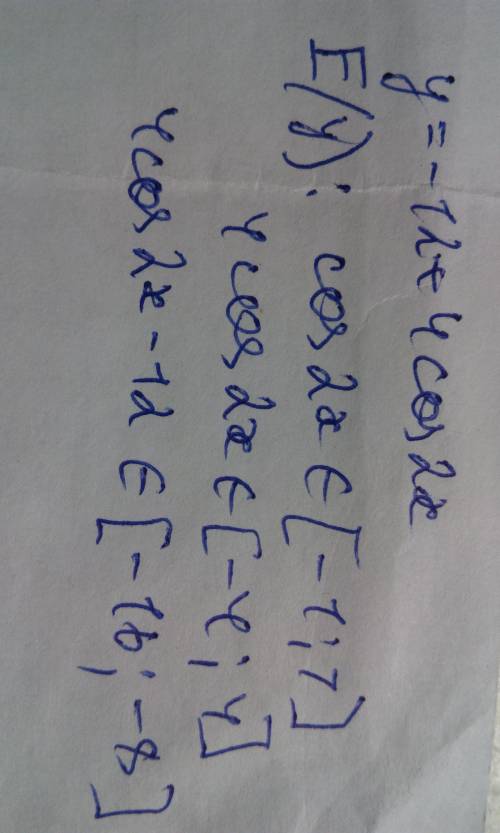 y = -12+4cos2x
E(y): cos2x ∈ [-1; 1]
4cos2x ∈ [-4; 4]
4cos2x -12 ∈ [-16; -8]